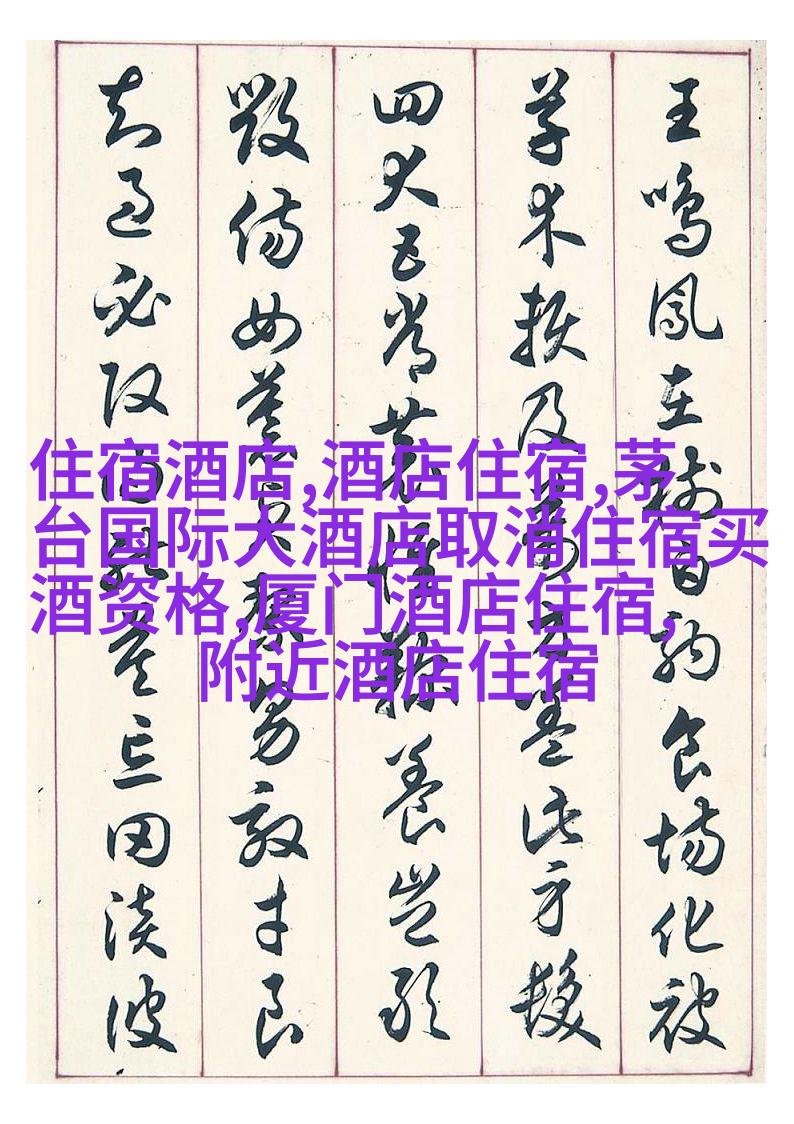 住宿酒店,酒店住宿,茅
台国际大酒店取消住宿买
酒资格,厦门酒店住宿,
附近酒店住宿
王鳴鳳在樹白駒食場化被
草木賴及萬方蓋此身髮
四大五常恭惟鞠養豈敢
毀傷女慕貞絜男效才良
知過必改得能莫忘罔談彼